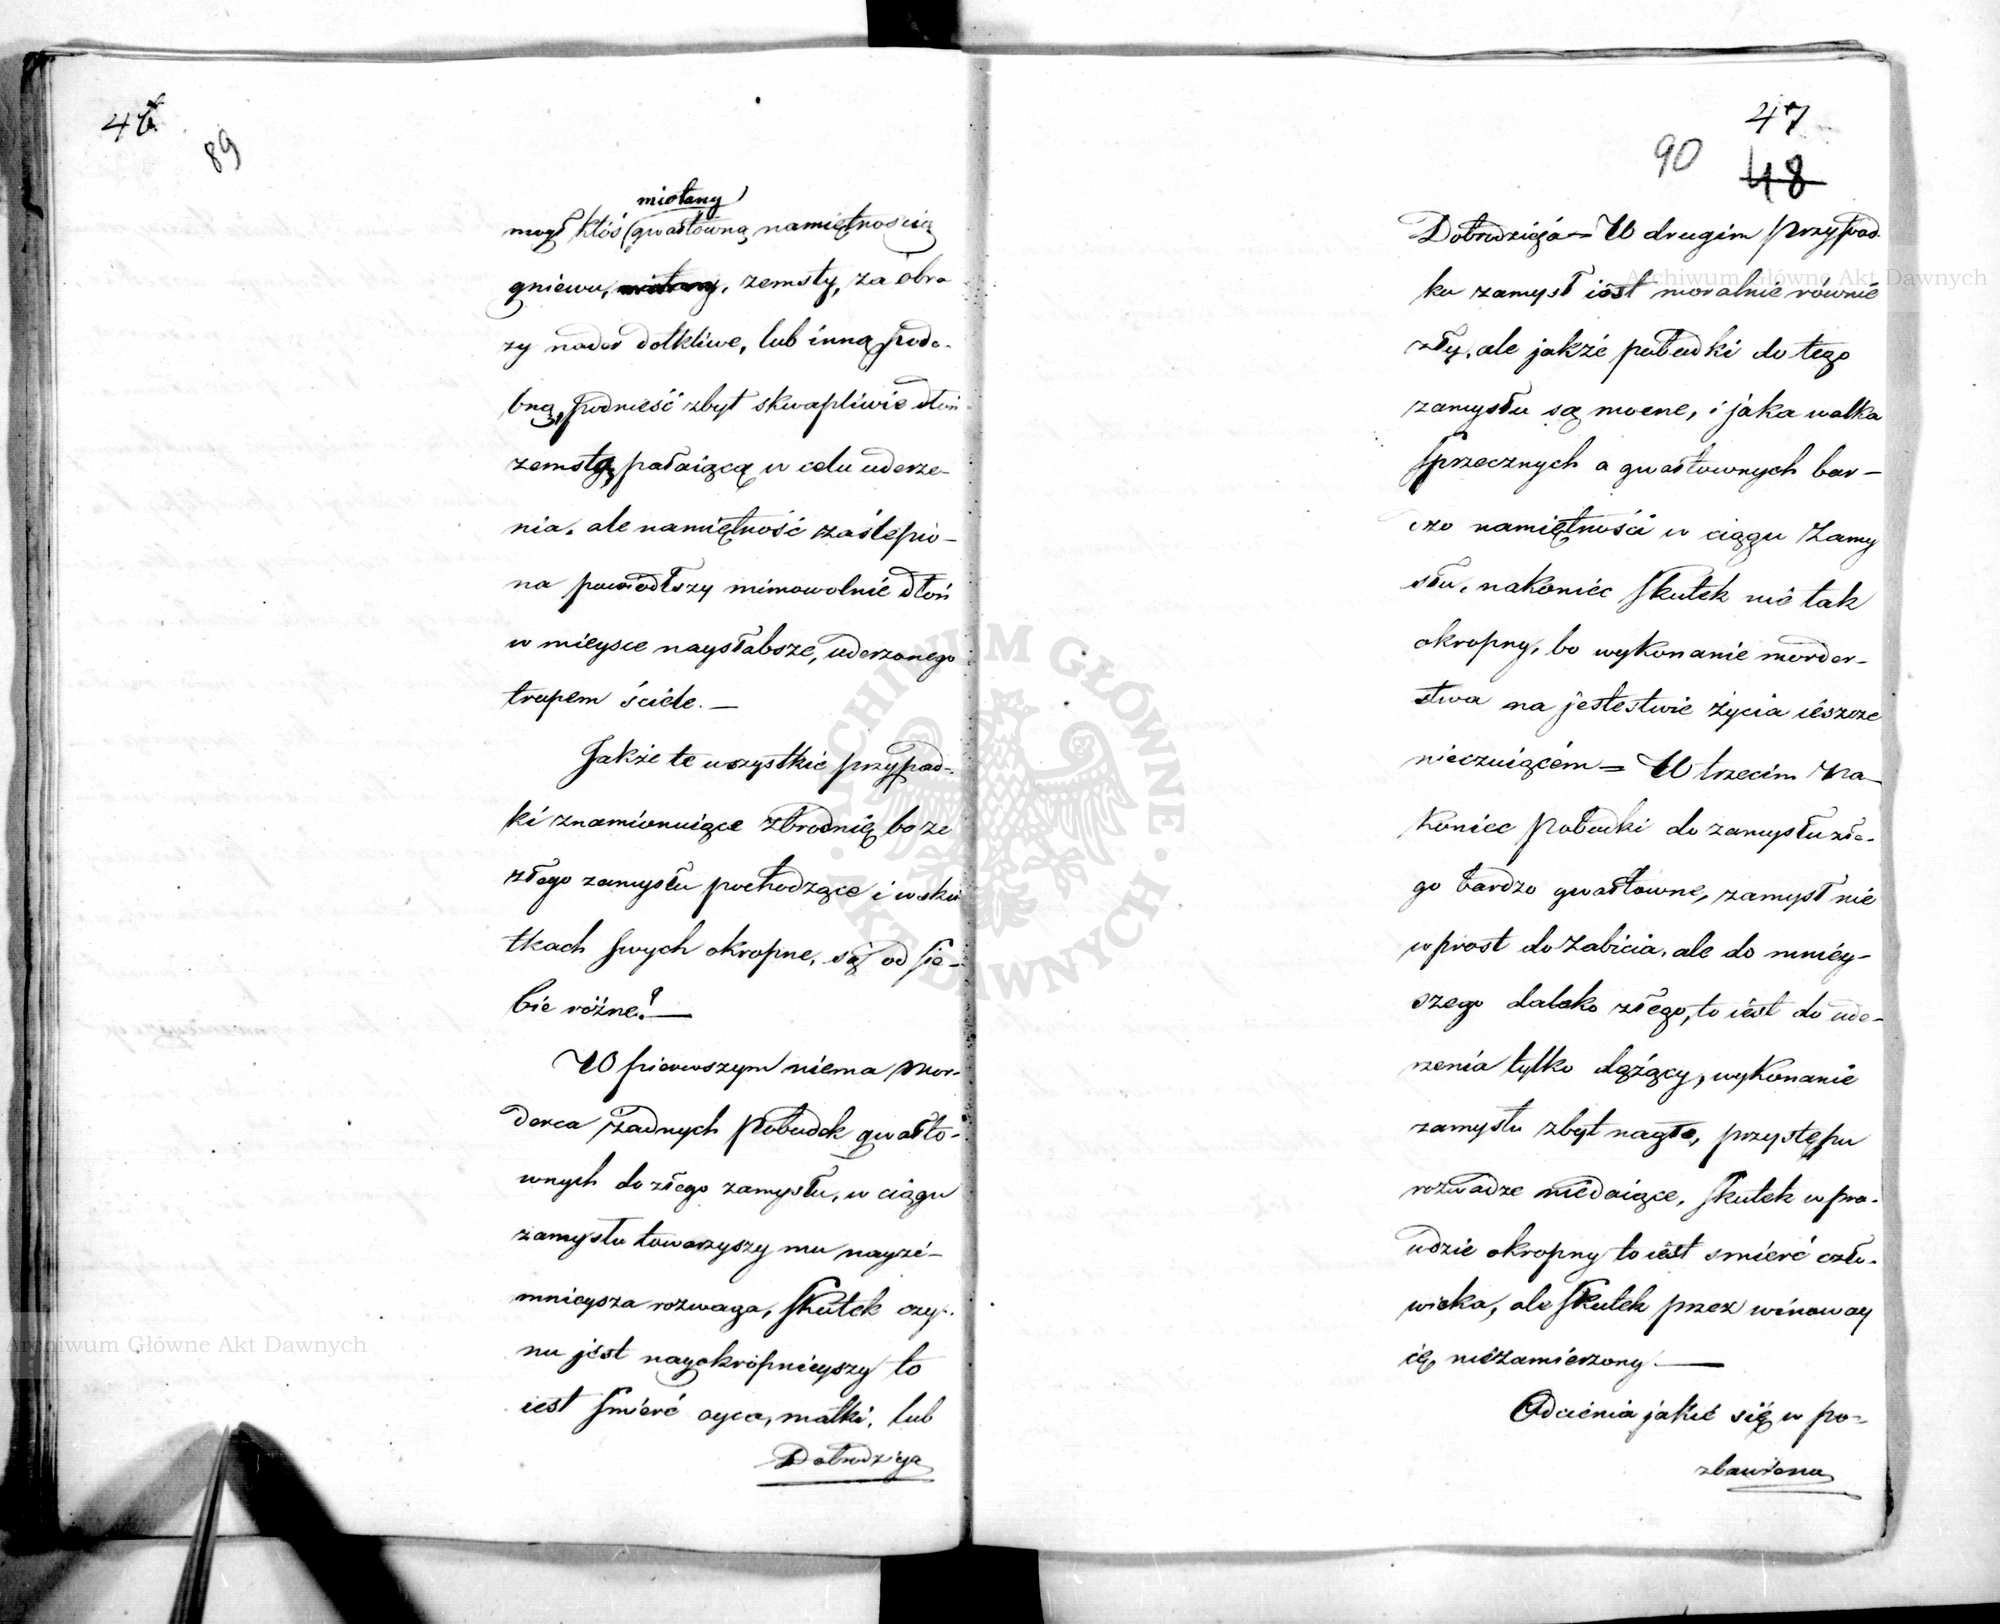 46
89
miotany
mógł ktoś gwałtowną namiętnością
gniewu, zemsty, za obra-
zy nader dotkliwe, lub inną podo-
bną, podnieść zbyt skwapliwie dłoń
zemstą pałaiącą w celu uderze-
nia, ale namiętność zaślepio-
na powiodłszy mimowolnie dłoń
w mieysce naysłabsze, uderzonego
trupem ściele. —
Jakże te wszystkie przypad-
ki znamionuiące zbrodnię bo ze
złego zamysłu pochodzące i w sku
tkach swych okropne, są od sie-
bie różne? —
W pierwszym niema mor-
derca żadnych pobudek gwałto-
wnych do złego zamysłu, w ciągu
zamysłu towarzyszy mu nayzi-
mnieysza rozwaga, skutek czy-
nu jest nayokropnieyszy to
iest śmierć oyca, matki, lub
Dobrodzieja
47
90
48
Dobrodzieja = W drugim przypad-
ku zamysł iest moralnie równie
zły, ale jakże pobudki do tego
zamysłu są mocne, i jaka walka
sprzecznych a gwałtownych bar-
dzo namiętności w ciągu zamy
słu, nakoniec skutek nie tak
okropny, bo wykonanie morder-
stwa na jestestwie życia ieszcze
nieczuiącém = W trzecim na-
koniec pobudki do zamysłu złe-
go bardzo gwałtowne, zamysł nie
wprost do zabicia, ale do mniey-
szego daleko złego, to iest do ude-
rzenia tylko dążący, wykonanie
zamysłu zbyt nagłe, przystępu
rozwadze niedaiące, skutek w pra-
wdzie okropny to iest smierć czło-
wieka, ale skutek przez winoway
cę niezamierzony. —
Odcienia jakie się w po-
zbawienu
Archiwum Główne Akt Dawnych
Archiwum Główne Akt Dawnych
ARCHIWUM GŁÓWNE AKT DAWNYCH